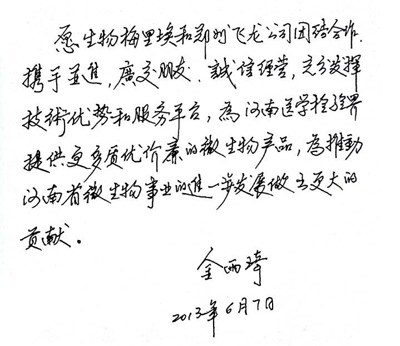 愿生物梅里埃和郑州飞龙公司团结合作.
携手並進,廣交朋友.誠信経营,充分发挥
技術优势和服务平台,為河南医学检验界
提供更多质优价廉的微生物产品,為推動
河南省微生物事业的進一步发展做出更大的
贡献.
金西琦
2013年6月7日